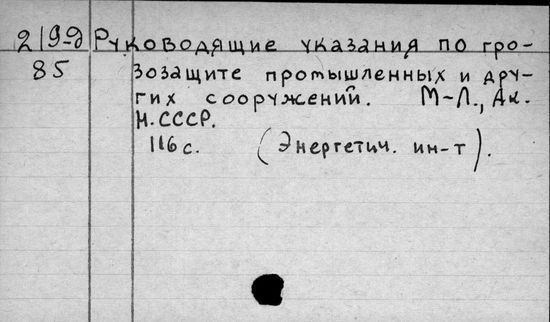 219-д Руководящие указания по гро-
85 зозащите промышленных и дру-
гих сооружений. М-Л., Ак.
Н.СССР.
116 с. (Энергетич. ин-т).